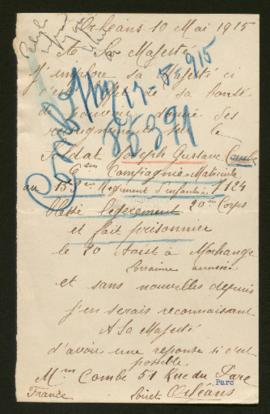 Orléans 10 Mai 1915
A Sa Majesté
J'implore sa Majesté si
sa bonté
de donné des
le
Combe 17-5-915
Soldat Joseph Gustave Combe
6em Compagnie Matricule
au 15 Regiment d'infanterie 1124
blessé Légèrement 20em Corps
et fait prisonnier
le 20 Aoust à Morhange
Lorraine annexée
et sans nouvelles depuis
J'en serais reconnaissant
A Sa Majesté
d'avoir une reponse si c'est
possible
Mme Combe 51 Rue du Parc
Parc
France Loiret Orléans